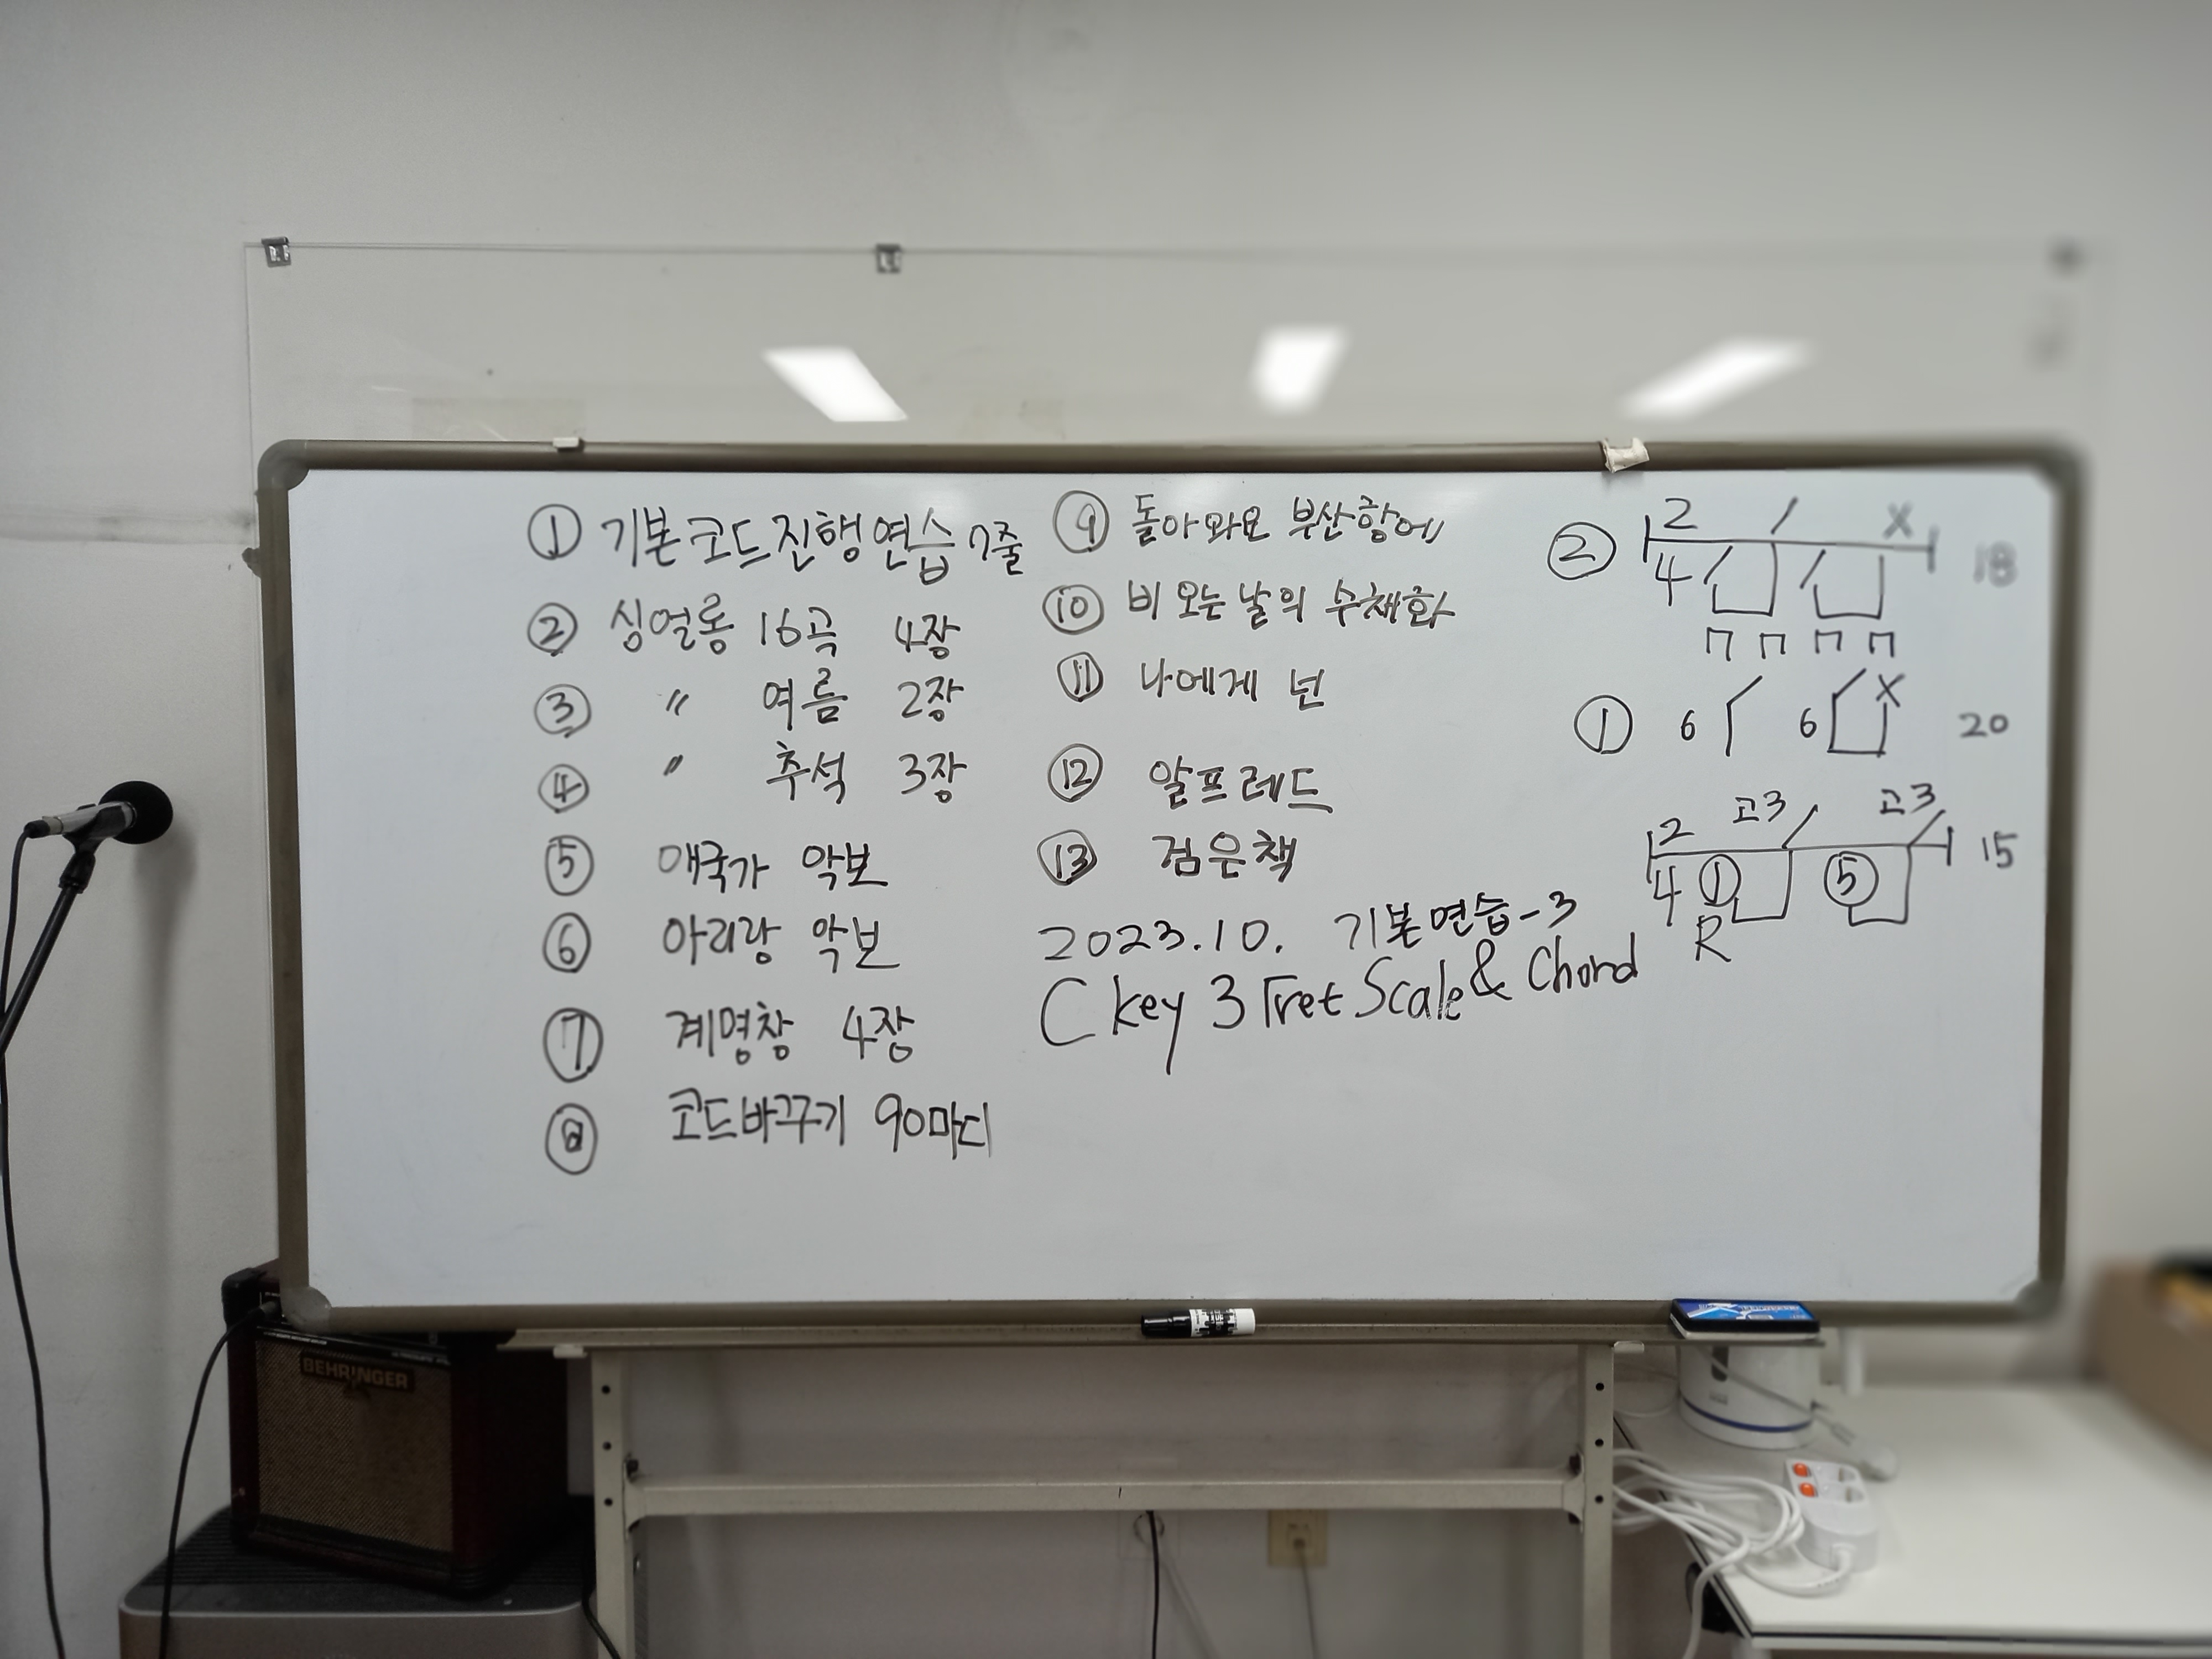 ① 기본코드진행연습 7줄
② 싱얼롱 16곡 4장
③ 〃 여름 2장
④ 〃 추석 3장
⑤ 애국가 악보
⑥ 아리랑 악보
⑦ 계명창 4장
⑧ 코드바꾸기 90마디
⑨ 돌아와요 부산항에
⑩ 비 오는 날의 수채화
⑪ 나에게 넌
⑫ 알프레드
⑬ 검은책
2023.10. 기본연습-3
C key 3 Fret Scale & Chord
② 2 / X 18
4
① 6 6 X 20
2 고3 고3 15
4 ① ⑤
R
BEHRINGER